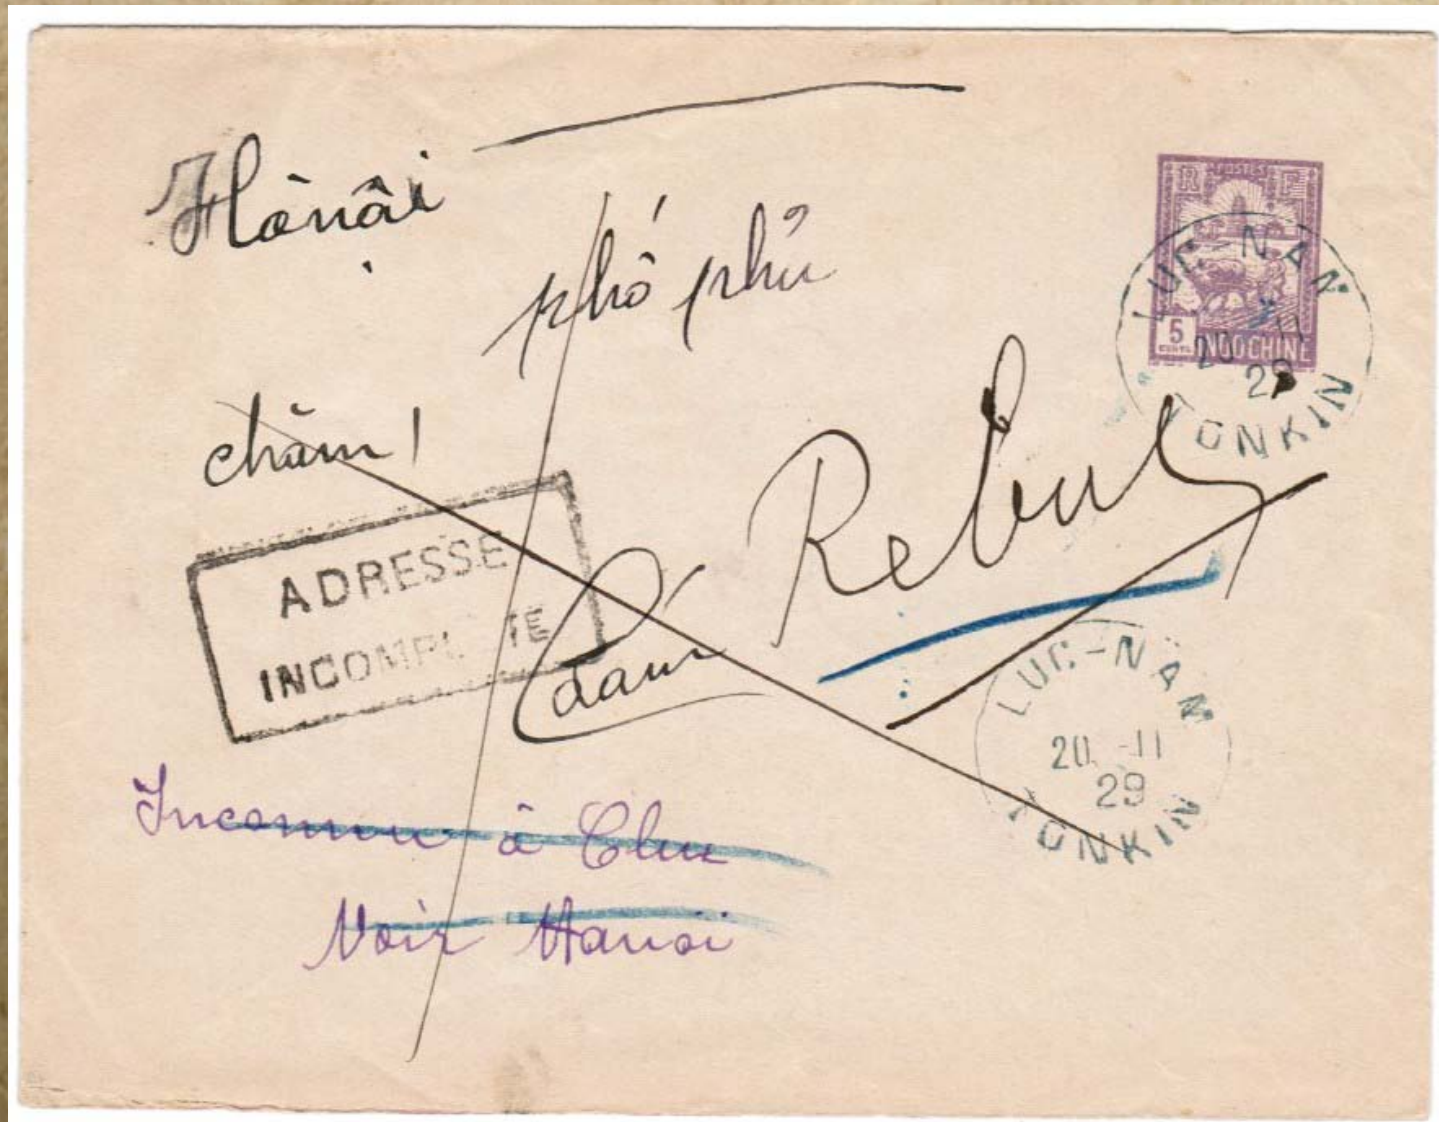 Hànội
phố phủ
châm
ADRESSE
INCOMPLETE
Rebut
Inconnu à Chu
Voir Hanoi
R F
POSTES
5
CENTS
INDOCHINE
LUC-NAM
20 -11
29
TONKIN
LUC-NAM
20 -11
29
TONKIN